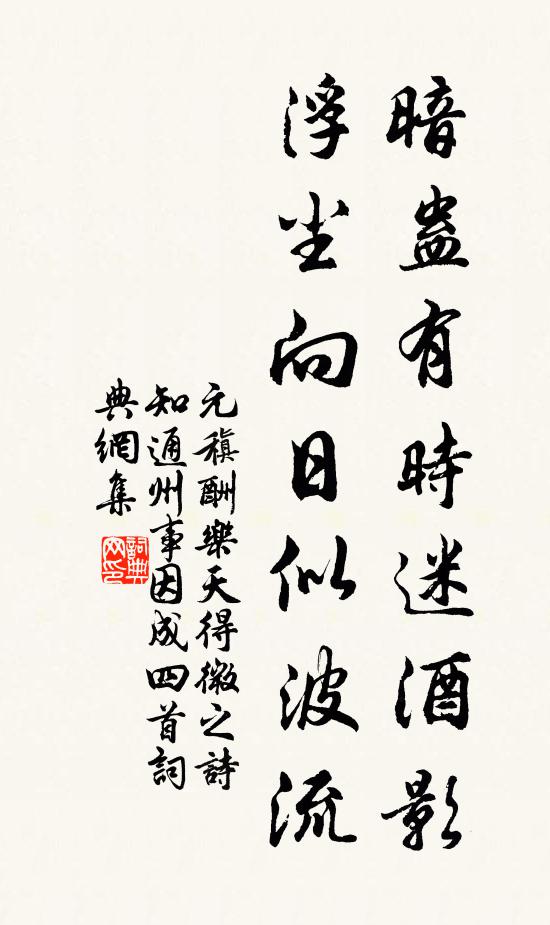 暗蠱有時迷酒影
浮尘向日似波流
元稹酬樂天得微之詩
知通州事因成四首詞
典網集
詞典
网印